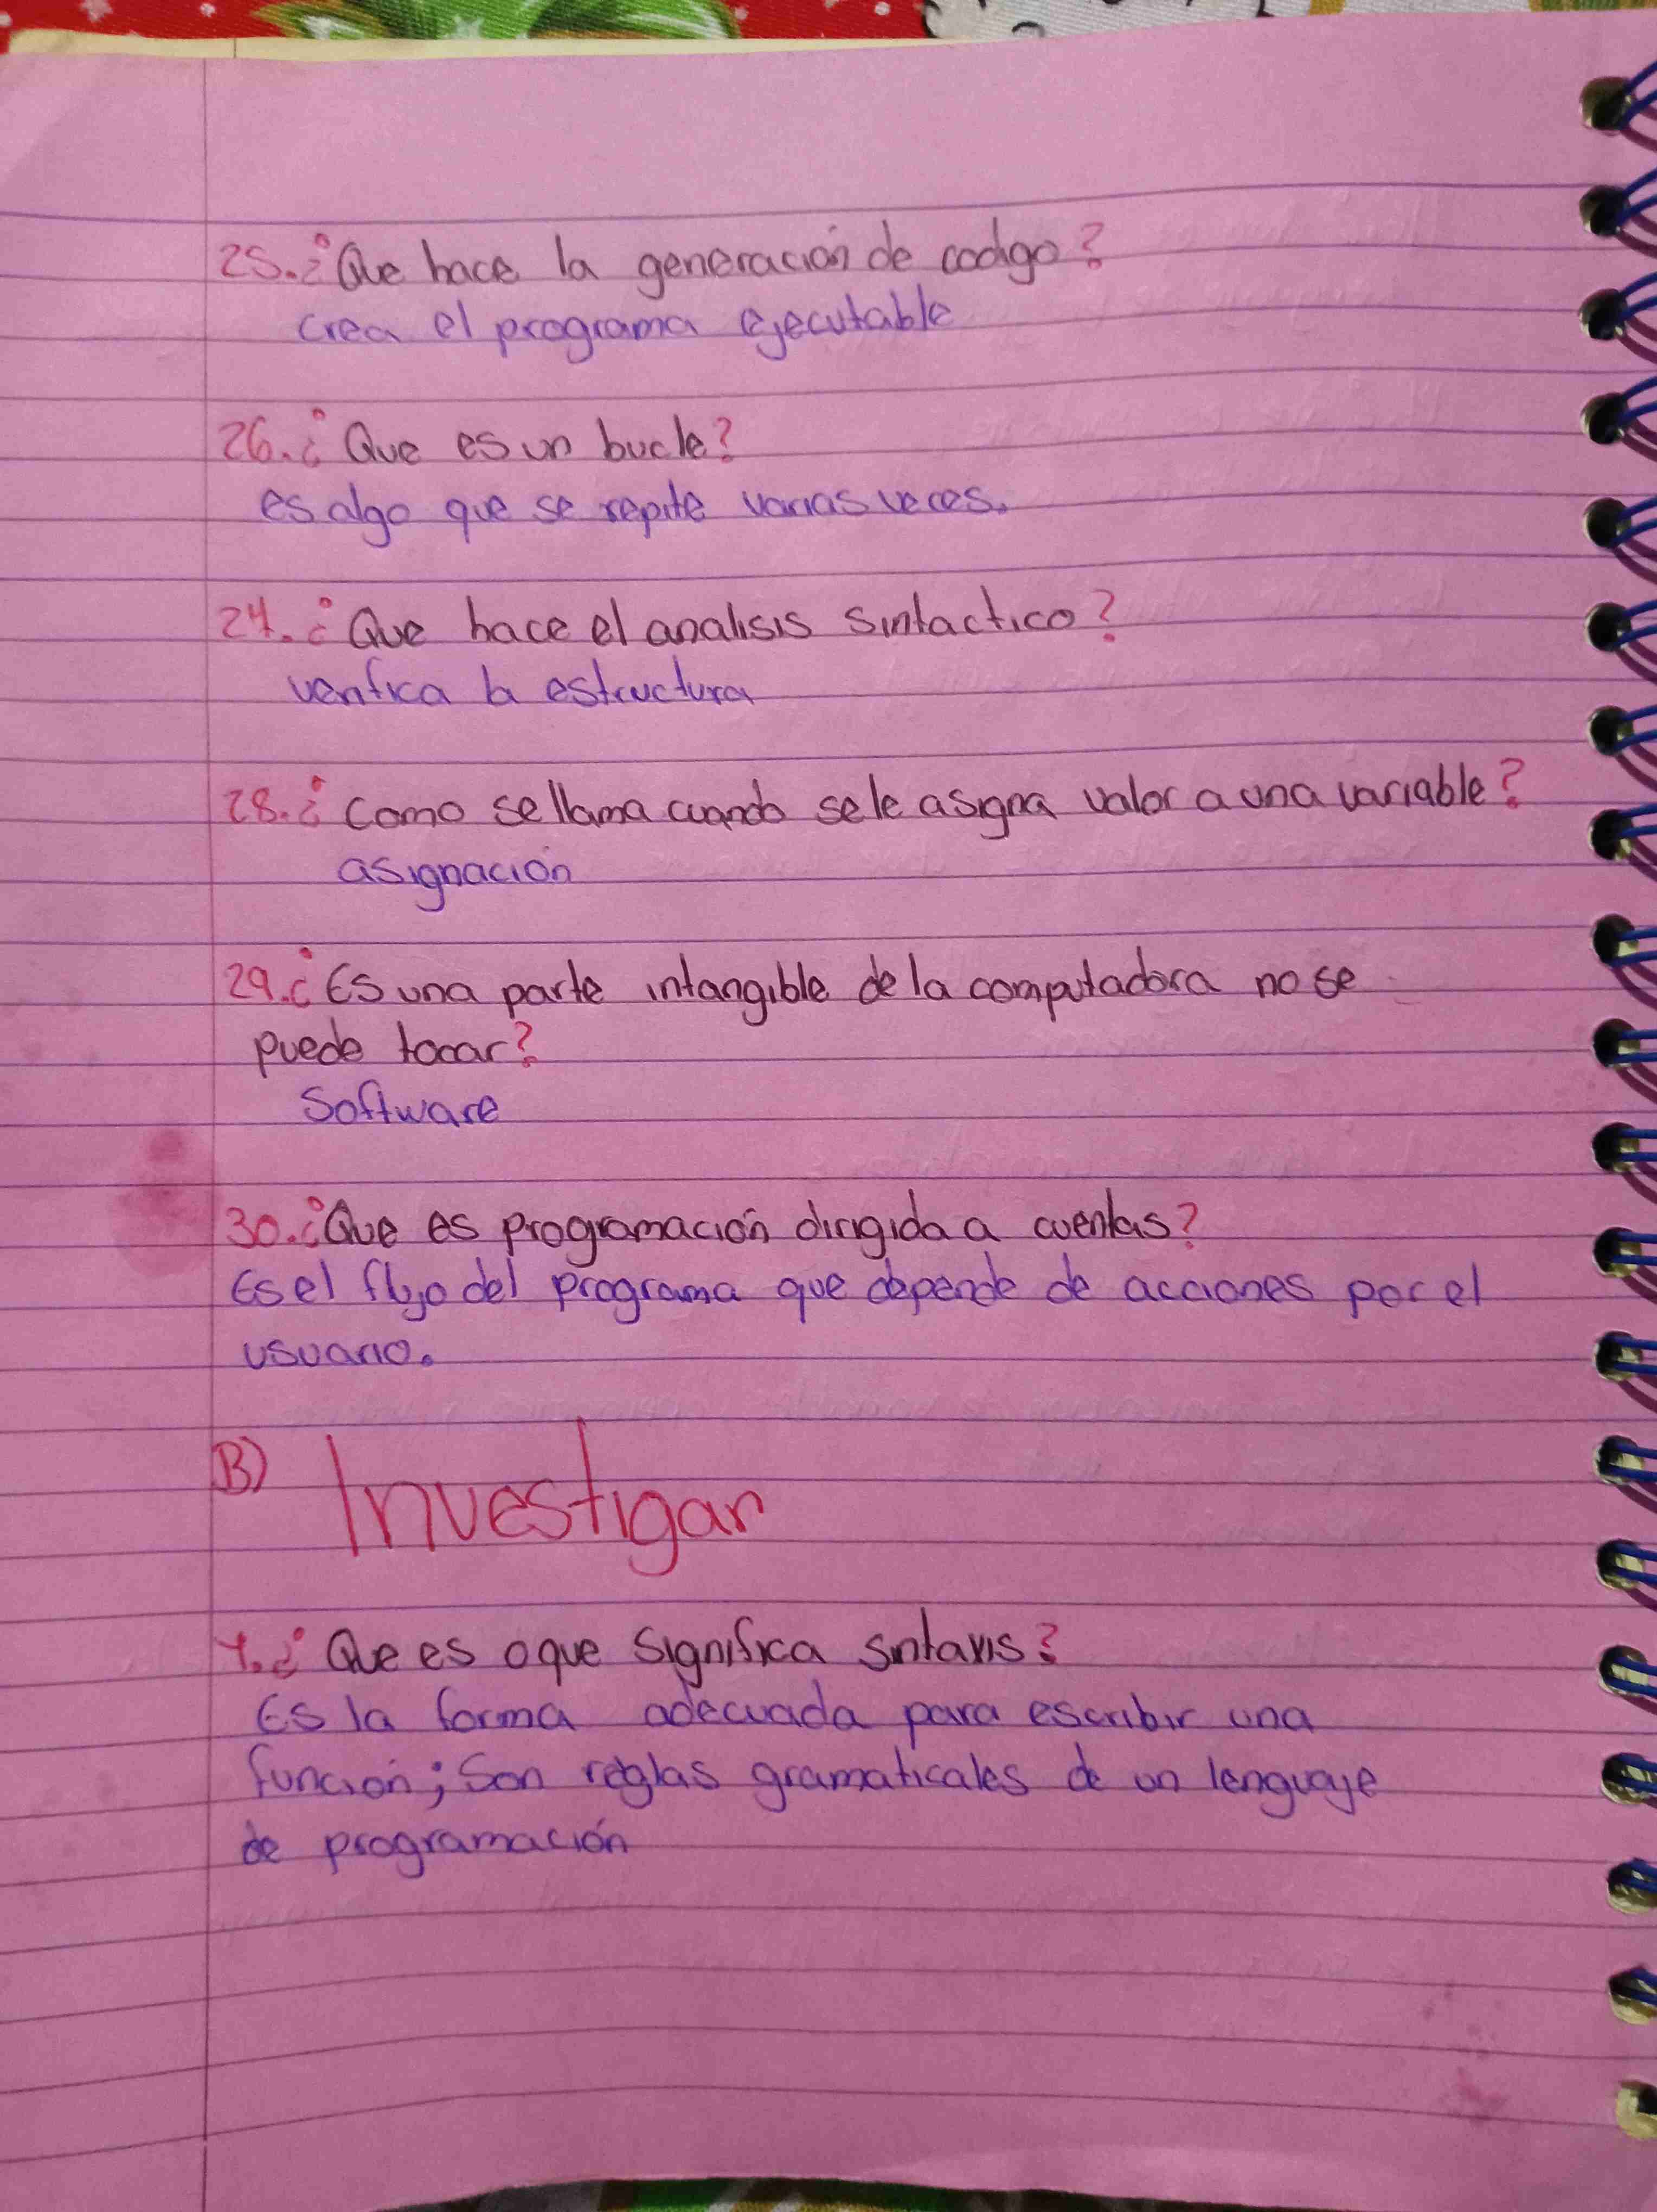 25. ¿Que hace la generación de codigo?
crea el programa ejecutable
26. ¿Que es un bucle?
es algo que se repite varias veces.
27. ¿Que hace el analisis sintactico?
verifica la estructura
28. ¿Como se llama cuando se le asigna valor a una variable?
asignación
29. ¿Es una parte intangible de la computadora no se
puede tocar?
Software
30. ¿Que es programación dirigida a cuentas?
Es el flujo del programa que depende de acciones por el
usuario.
B) Investigar
1. ¿Que es o que significa sintaxis?
Es la forma adecuada para escribir una
función; Son reglas gramaticales de un lenguaje
de programación